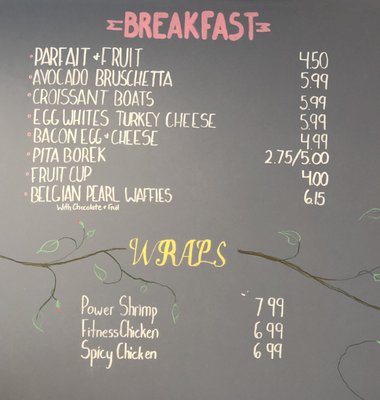 BREAKFAST
PARFAIT & FRUIT 4.50
AVOCADO BRUSCHETTA 5.99
CROISSANT BOATS 5.99
EGG WHITES TURKEY CHEESE 5.99
BACON EGG & CHEESE 4.99
PITA BOREK 2.75/5.00
FRUIT CUP 4.00
BELGIAN PEARL WAFFLES 6.15
With Chocolate & Fruit
WRAPS
Power Shrimp 7 99
Fitness Chicken 6 99
Spicy Chicken 6 99